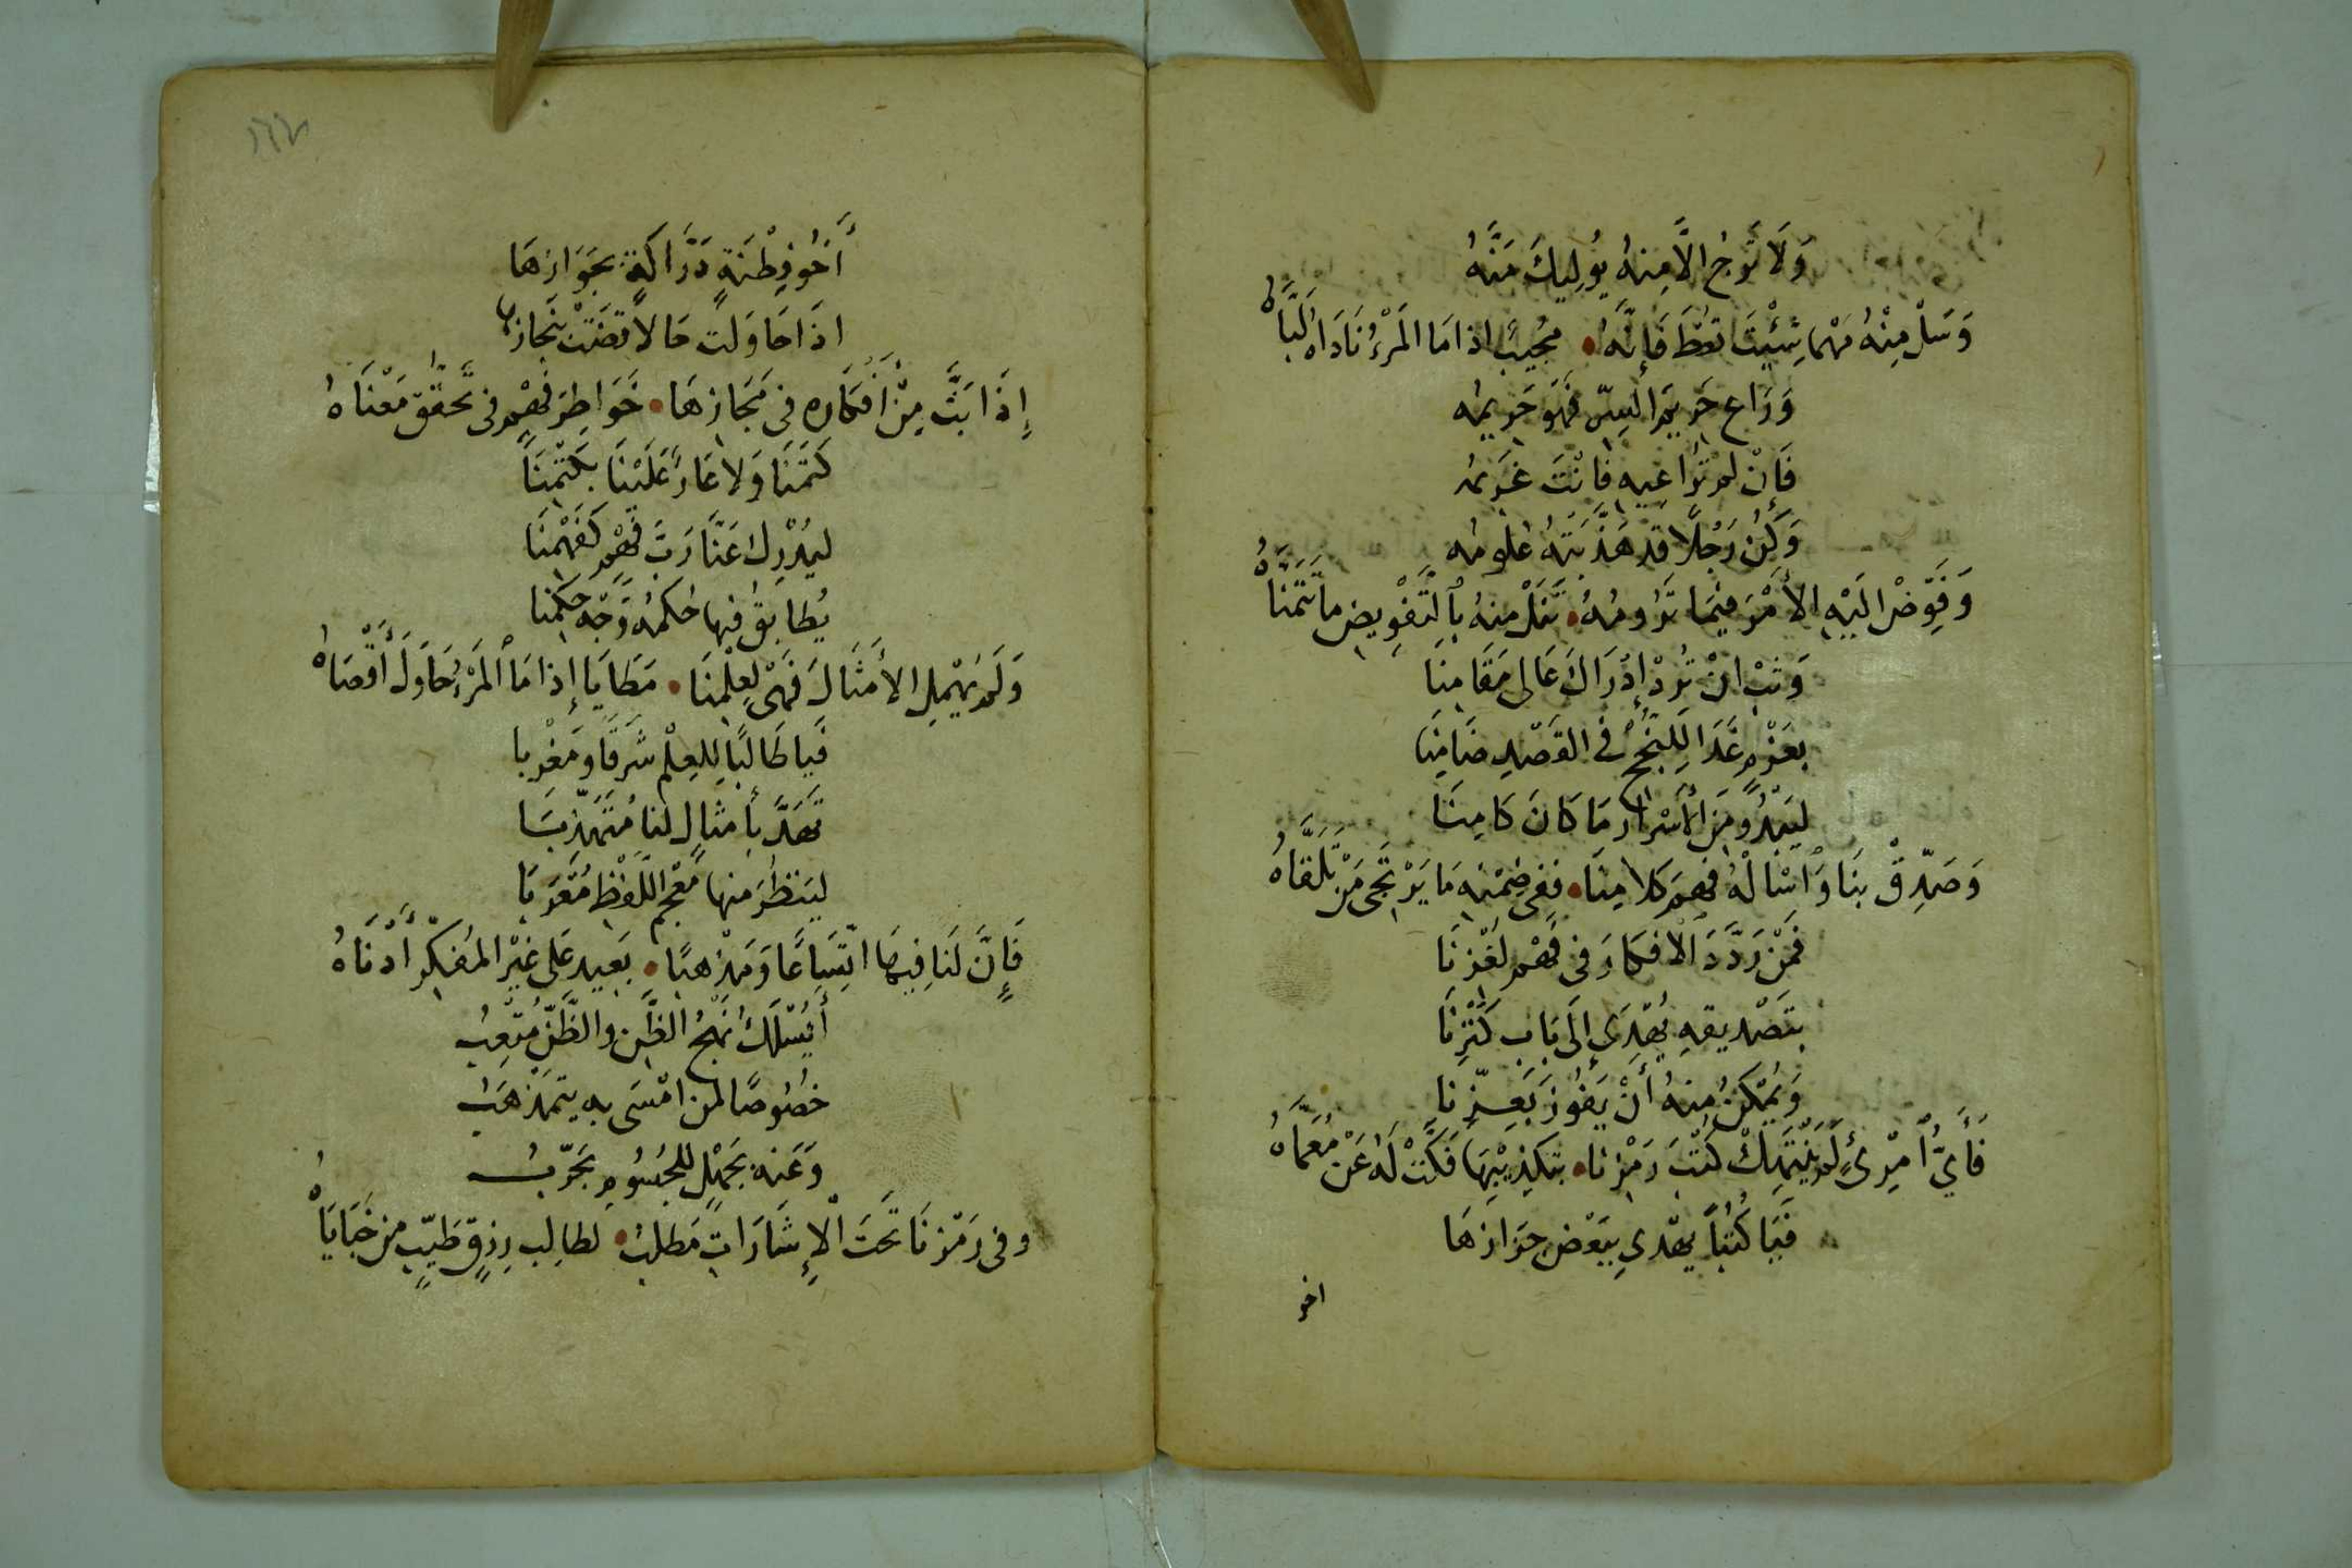 وَلَا تَرْجُ الَّا مِنهُ يُولِيكَ مَنَّهُ
وَسَلْ مِنْهُ مَهْما شِئْتَ تعْطَ فَإِنَّهُ • مُجِيبٌ اذا مَا المَرْءُ نَادَاهُ لَبَّاهُ
وَرَاعِ حَرِيمَ السِرِّ فَهَو حَرِيمُه
فَإِنْ لم تُرَاعِيهِ فَانْتَ غَرِيمُه
وَكُن رَجُلًا قد هَذَّبَتهُ عُلُومُه
وَفَوِّضْ الَيْهِ الأَمْرَ فيمَا تَرُومُهُ • تَنَلْ مِنهُ بِالتَّفْوِيضِ ما تَتَمَنَّاهُ
وَثِبْ انْ تُرِدْ إِدْرَاكَ عَالى مَقَامِنَا
بعَزْمٍ غَدَا لِلنُّجْحِ فى القَصْدِ ضَامِنَا
ليَبْدُو مِنَ الأَسْرَارِ مَا كَانَ كَامِنَا
وَصَدِّقْ بِنَا وَاسْالْهُ فَهمَ كلامِنَا • ففى ضِمْنِهِ مَا يَرْتَجى مَنْ تَلَقَّاهُ
فَمَنْ رَدَّدَ الافكَارَ فى فَهْمِ لَغْزِنَا
بتَصْدِيقهِ يُهْدَى إِلَى بَابِ كَنْزِنَا
وَيُمْكِنُ مِنهُ أَنْ يَفُوزَ بَعِزِّنا
فَأَىُّ امْرِئٍ لَم يَنْتَهِكْ كُتْبَ رَمْزِنا • بتَكذِيْبِهَا فَكَّتْ لَهُ عَنْ مُعَمَّاهُ
فَيَا كُتُبًا يهْدى بِبَعْضِ حَزَازِهَا
اخو
١٦٧
أَخُو فِطْنَةٍ دَرَّاكَةٍ بجَوَازِهَا
اذَا حَاوَلت حَالاً قضَتْ بنَجَازِها
إِذَا بَثَّ مِنْ أَفكَارِه فى مَجَازِهَا • خَوَاطِرَ فَهْمٍ فى تَحَقُّقِ مَعْنَاهُ
كَتَمْنَا وَلا عَارٌ عَلَيْنَا بكَتْمِنَا
ليُدْرِكَ عَنَّا رَبّ فَهْمٍ كَفَهْمِنَا
يُطابِقُ فيها حُكمُه وَجْهَ حُكمِنا
وَلَم نُهْمِلِ الأَمثَالَ فَهْىَ لِعِلْمِنَا • مَطَايَا إِذا مَا المَرْءُ حَاوَلَ أَقْصَاهُ
فَيا طَالبًا لِلعِلْمِ شَرقًا وَمَغْرِبا
تَهَدَّ بأَمثالٍ لنا مُتَهَذِّبَا
ليَنظُرَ منها مُعْجم اللَفْظِ مُعْرَبَا
فَإِنَّ لَنَا فِيهَا اتّسَاعًا وَمَذْهبًا • بَعِيدٍ عَلى غَيْرِ المُفَكِّرِ أَدْنَاهُ
أَيُسْلَكُ نَهْجُ الظَّنِ والظَّنُّ مُتْعِبُ
خصُوصًا لمن امْسَى به يتمَذْهَبُ
وَعَنه بجَهْلٍ للجُسُومِ يجَرّبُ
وفى رَمْزِنَا تَحَتَ الإِشَارَاتِ مَطلبُ • لطالِبِ رِزقٍ طَيّبٍ من خَبَايَاهُ